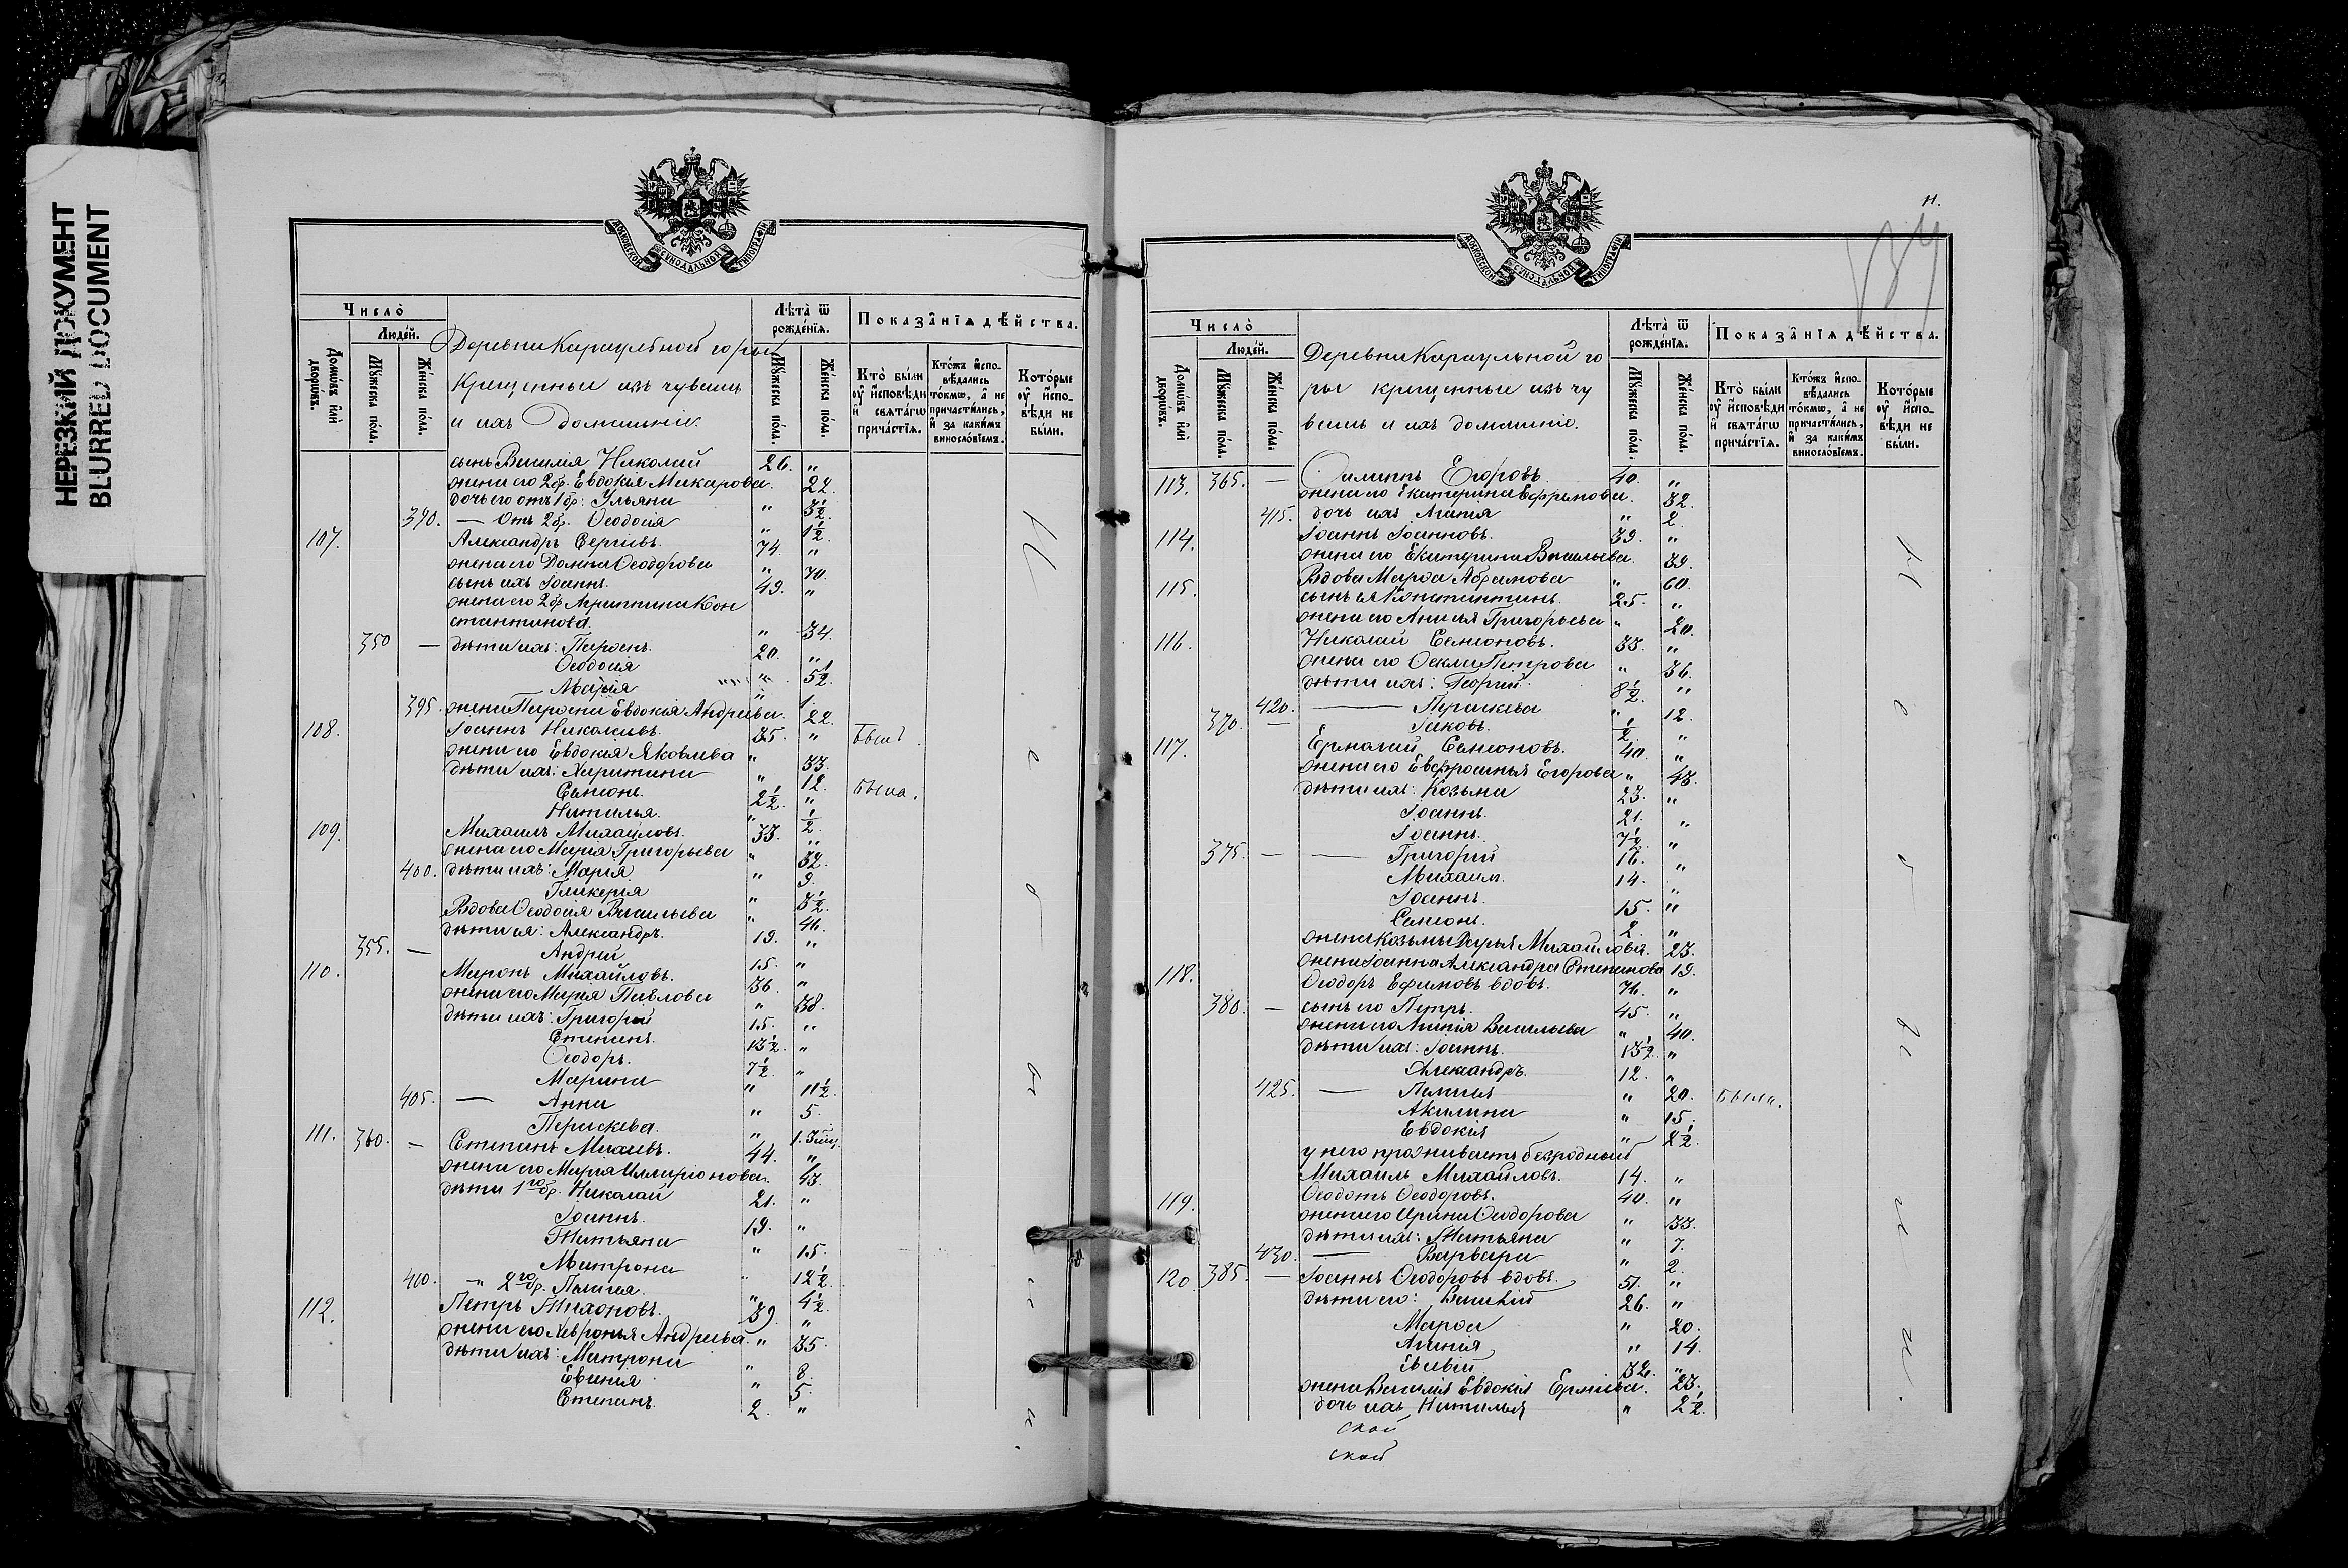 НЕРЕЗКИЙ ДОКУМЕНТ
BLURRED DOCUMENT
МОСКОВСКОЙ СѴНОДАЛЬНОЙ ТИПОГРАФІИ
Число̀
Люде́й.
Домѡ́въ и҆лѝ дворѡ́въ.
Мꙋ́жеска по́ла.
Же́нска по́ла.
Деревни Караульной горы
Крещенные изъ чувашъ
и ихъ домашніе.
Лѣ́та ѿ рожде́нїѧ.
Мꙋ́жеска по́ла.
Же́нска по́ла.
Показа̂нїѧ дѣ́йства.
Кто̀ бы́ли оу҆ и҆сповѣди и҆ свѧта́гѡ прича́стїѧ.
Кто́жъ и҆спо-вѣдались то́кмѡ, а҆ не причасти́лись, и҆ за каки́мъ винослові́емъ.
Кото́рые оу҆ и҆спо-вѣди не бы́ли.
сынъ Василія Николай 26. "
жена его 2 бр. Евдокія Макарова. 22.
дочь его отъ 1 бр: Ульяна " 3½.
390. — Отъ 2 бр. Ѳеодосія " 1½.
107. Александръ Сергіевъ. 74. "
жена его Домна Ѳеодорова " 70.
сынъ ихъ Іоаннъ. 49. "
жена его 2 бр Агриппина Кон
стантинова. " 34.
350 — дѣти ихъ: Парѳенъ. 20. "
Ѳеодосія " 5½.
Марія " 1.
395. жена Парѳена Евдокія Андреева. 22.
108. Іоаннъ Николаевъ. 35. " Былъ.
жена его Евдокія Яковлева " 33.
дѣти ихъ: Харитина " 12. Была.
Симеонъ. 2½. "
Наталья. " ½.
109. Михаилъ Михайловъ. 33. "
жена его Марія Григорьева " 32.
400. дѣти ихъ: Марія " 9.
Гликерія " 3½.
Вдова Ѳеодосія Васильева " 46.
дѣти ея: Александръ. 19. "
355. — Андрей 15. "
110. Миронъ Михайловъ. 36. "
жена его Марія Павлова " 38.
дѣти ихъ: Григорій 15. "
Степанъ. 13½. "
Ѳеодоръ. 7½. "
Марина " 11½.
405. — Анна " 5.
Параскева. " 1.
111. 360. — Степанъ Михеевъ. 44. "
жена его Марія Илларіонова. 43.
дѣти 1го бр. Николай 21. "
Іоаннъ. 19. "
Татьяна " 15.
Матрона " 12½.
410. — " 2го бр. Пелагія. " 4½.
112. Петръ Тихоновъ. 39. "
жена его Хевронья Андреева. " 35.
дѣти ихъ: Матрона " 8.
Евгенія " 5.
Степанъ. 2. "
Не были.
МОСКОВСКОЙ СѴНОДАЛЬНОЙ ТИПОГРАФІИ
Число̀
Люде́й.
Домѡ́въ и҆лѝ дворѡ́въ.
Мꙋ́жеска по́ла.
Же́нска по́ла.
Деревни Караульной го
ры крещенные изъ чу
вашъ и ихъ домашніе.
Лѣ́та ѿ рожде́нїѧ.
Мꙋ́жеска по́ла.
Же́нска по́ла.
Показа̂нїѧ дѣ́йства.
Кто̀ бы́ли оу҆ и҆сповѣди и҆ свѧта́гѡ прича́стїѧ.
Кто́жъ и҆спо-вѣдались то́кмѡ, а҆ не причасти́лись, и҆ за каки́мъ винослові́емъ.
Кото́рые оу҆ и҆спо-вѣди не бы́ли.
113. 365. — Филиппъ Егоровъ. 40. "
жена его Екатерина Ефремова. 32.
415. дочь ихъ Агапія " 2.
114. Іоаннъ Іоанновъ. 39. "
жена его Екатерина Васильева. 39.
115. Вдова Марѳа Абрамова " 60.
сынъ ея Константинъ. 25. "
жена его Анисья Григорьева " 20.
116. Николай Симеоновъ. 33. "
жена его Ѳекла Петрова " 36.
дѣти ихъ: Георгій. 8½. "
420. — Параскева " 12.
370. — Іаковъ. ½. "
117. Ермолай Симеоновъ. 40. "
жена его Евфросинья Егорова " 43.
дѣти ихъ: Козьма 23. "
Іоаннъ. 21. "
Іоаннъ. 7½. "
375. — Григорій 16. "
Михаилъ. 14. "
Іоаннъ. 15. "
Симеонъ. 2. "
жена Козьмы Дарья Михайлова. 23.
жена Іоанна Александра Степанова 19.
118. Ѳеодоръ Ефимовъ вдовъ. 76. "
380. — сынъ его Петръ. 45. "
жена его Агапія Васильева " 40.
дѣти ихъ: Іоаннъ. 13½. "
Александръ. 12. "
425. — Пелагія " 20. Была.
Акилина " 15.
Евдокія " 2½.
у него проживаетъ безродный
Михаилъ Михайловъ. 14. "
119. Ѳеодотъ Ѳеодоровъ. 40. "
жена его Ирина Ѳеодорова " 33.
дѣти ихъ: Татьяна " 7.
430. — Варвара " 2.
120. 385. — Іоаннъ Ѳеодоровъ вдовъ. 51. "
дѣти его: Василій 26. "
Марѳа " 20.
Агапія " 14.
32. "
жена Василія Евдокія Ермлева. 23.
дочь ихъ Наталья " 2½.
ской
ской
Не были.